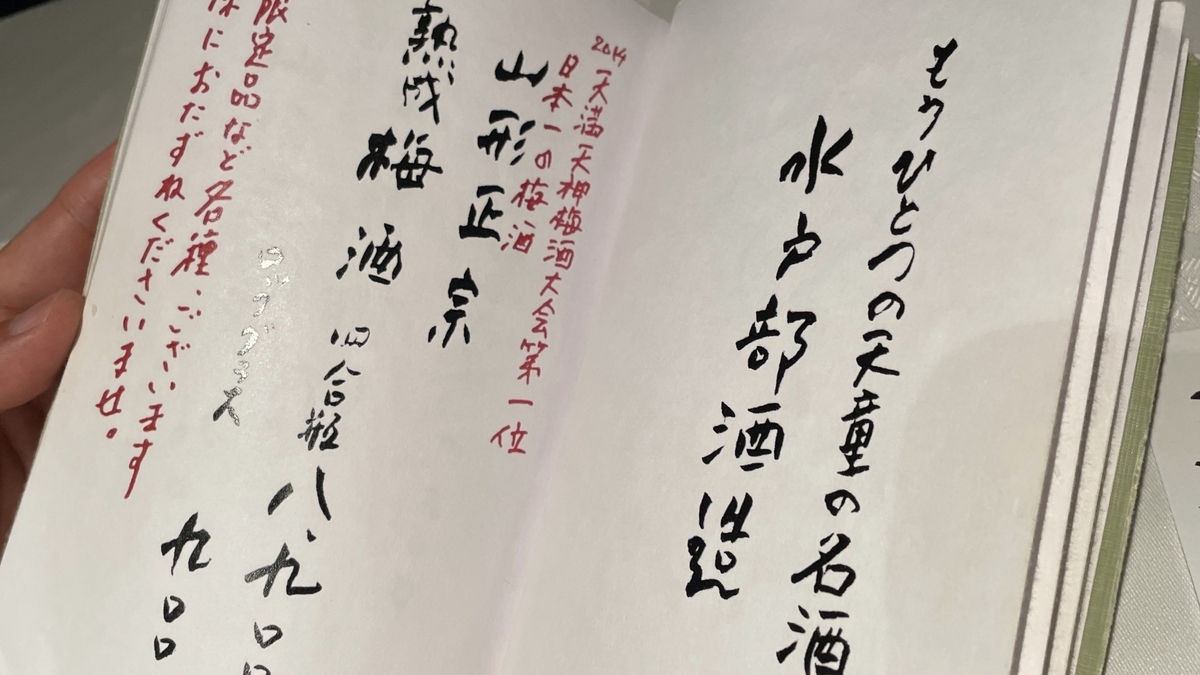 もうひとつの天童の名酒
水戸部酒造
2014 天満天神梅酒大会第一位
日本一の梅酒
山形正宗
熟成梅酒
四合瓶 八、九〇〇
グラス 九〇〇
限定品など各種ございます
におたずねくださいませ。